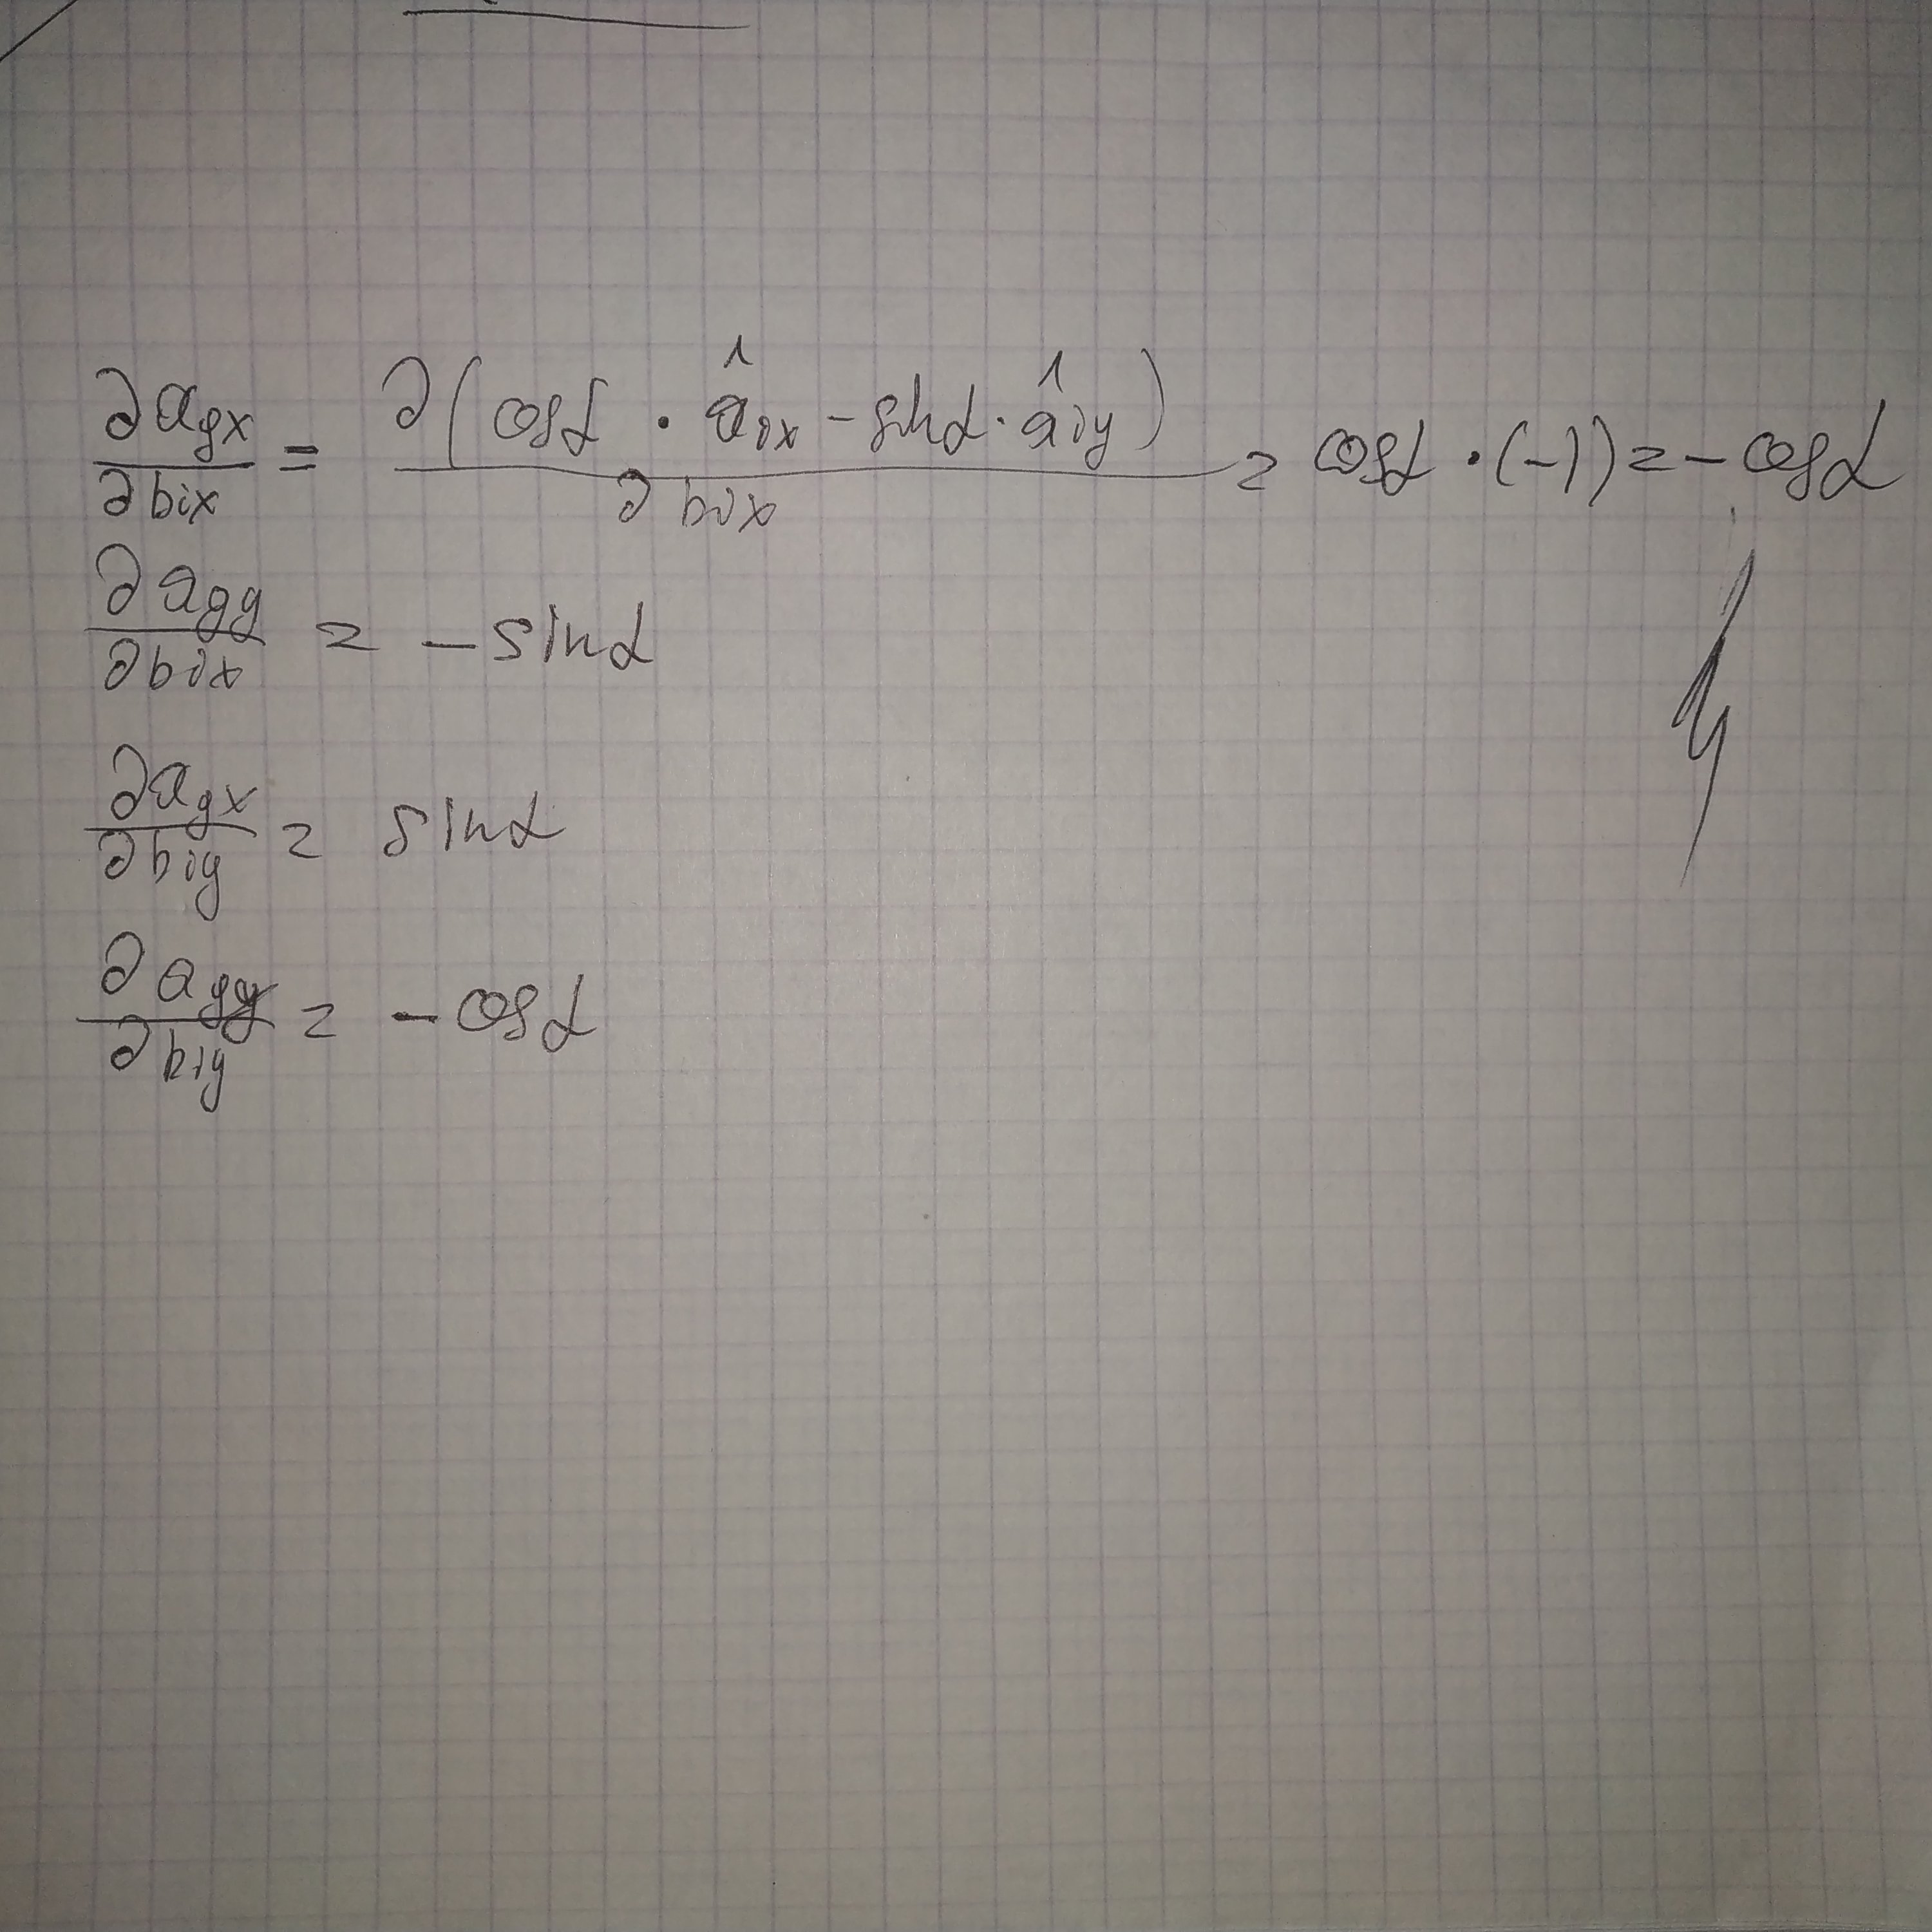 ∂a_gx / ∂b_ix = ∂(cosα · â_ix − sinα · â_iy) / ∂b_ix = cosα · (−1) = − cosα
∂a_gy / ∂b_ix = − sinα
∂a_gx / ∂b_iy = sinα
∂a_gy / ∂b_iy = − cosα